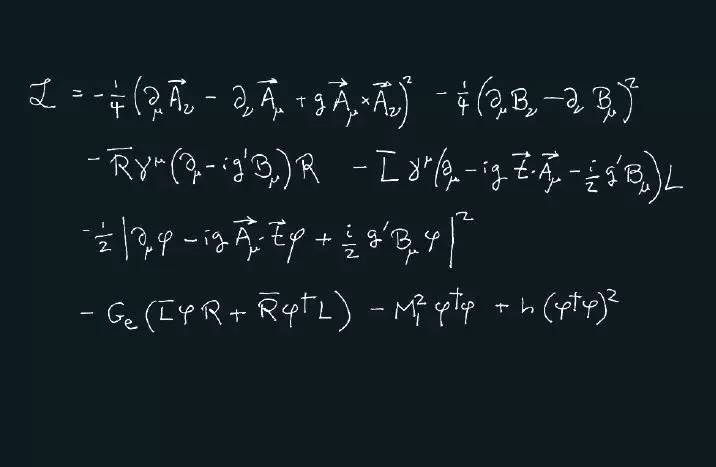 ℒ = -¼(∂_μ A⃗_ν - ∂_ν A⃗_μ + g A⃗_μ × A⃗_ν)² - ¼(∂_μ B_ν - ∂_ν B_μ)²
- R̄ γ^μ (∂_μ - ig' B_μ) R - L̄ γ^μ (∂_μ - ig t⃗·A⃗_μ - i/2 g' B_μ) L
- ½ |∂_μ φ - ig A⃗_μ·t⃗ φ + i/2 g' B_μ φ|²
- G_e (L̄ φ R + R̄ φ† L) - M₁² φ†φ + h (φ†φ)²